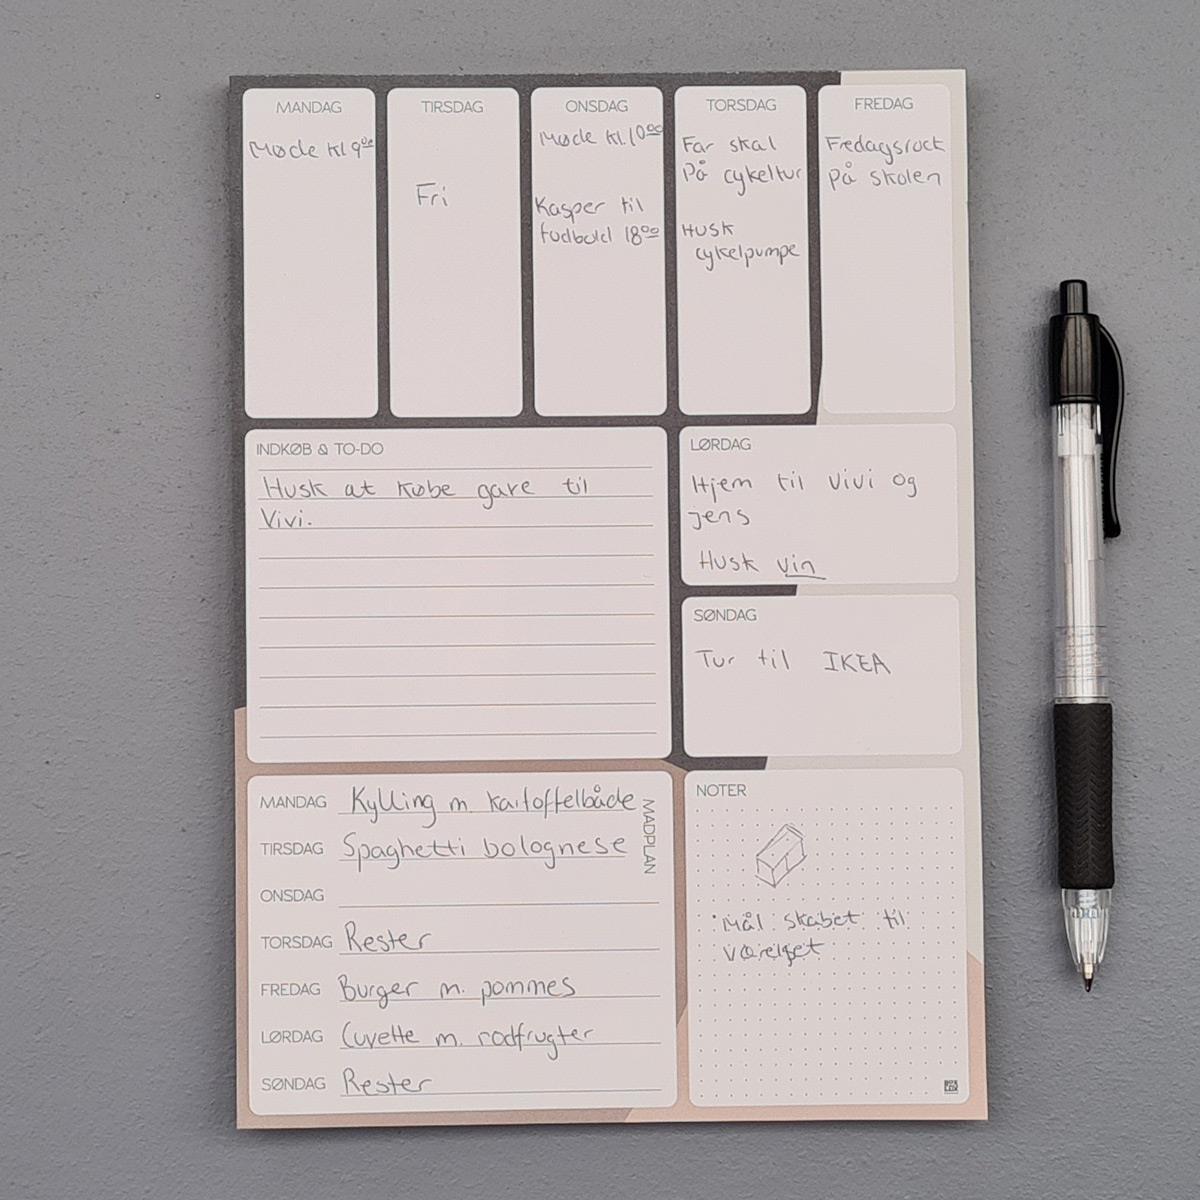 MANDAG
Møde kl 9⁰⁰
TIRSDAG
Fri
ONSDAG
Møde kl. 10⁰⁰
Kasper til
fodbold 18⁰⁰
TORSDAG
Far skal
På cykeltur
Husk
cykelpumpe
FREDAG
Fredagsrock
på skolen
INDKØB & TO-DO
Husk at købe gave til
Vivi.
LØRDAG
Hjem til Vivi og
jens
Husk vin
SØNDAG
Tur til IKEA
MADPLAN
MANDAG Kylling m kartoffelbåde
TIRSDAG Spaghetti bolognese
ONSDAG
TORSDAG Rester
FREDAG Burger m. pommes
LØRDAG Cuvette m. rodfrugter
SØNDAG Rester
NOTER
Mål skabet til
værelset